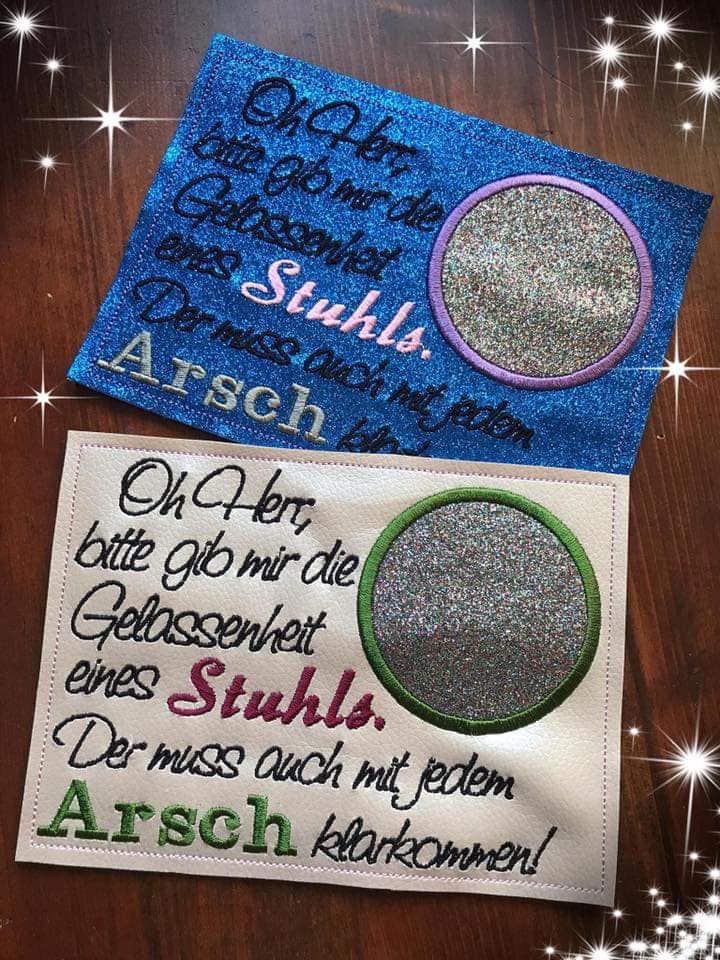 Oh Herr,
bitte gib mir die
Gelassenheit
eines Stuhls.
Der muss auch mit jedem
Arsch
Oh Herr,
bitte gib mir die
Gelassenheit
eines Stuhls.
Der muss auch mit jedem
Arsch klarkommen!